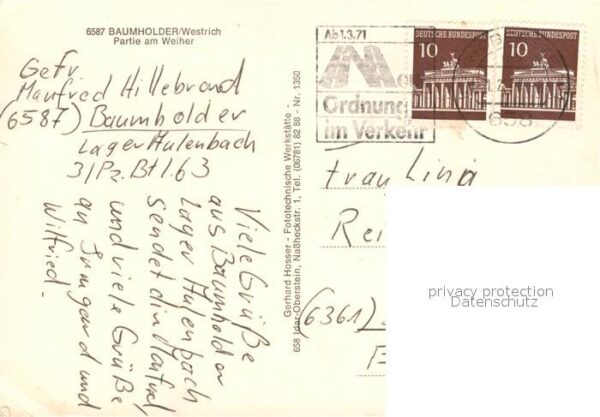 6587 BAUMHOLDER/Westrich
Partie am Weiher
Gefr.
Manfred Hillebrand
(6587) Baumholder
Lager Aulenbach
3/Pz. Btl. 63
Viele Grüße
aus Baumholder
Lager Aulenbach
sendet dir Manfred,
und viele Grüße
an Irmgard und
Wilfried.
Gerhard Hosser - Fototechnische Werkstätte -
658 Idar-Oberstein, Naßheckstr. 1, Tel. (06781) 82 88 - Nr. 1350
Ab 1.3.71
Ordnung
im Verkehr
DEUTSCHE BUNDESPOST
10
DEUTSCHE BUNDESPOST
10
658
Frau Lina
Rei
(6361)
privacy protection
Datenschutz